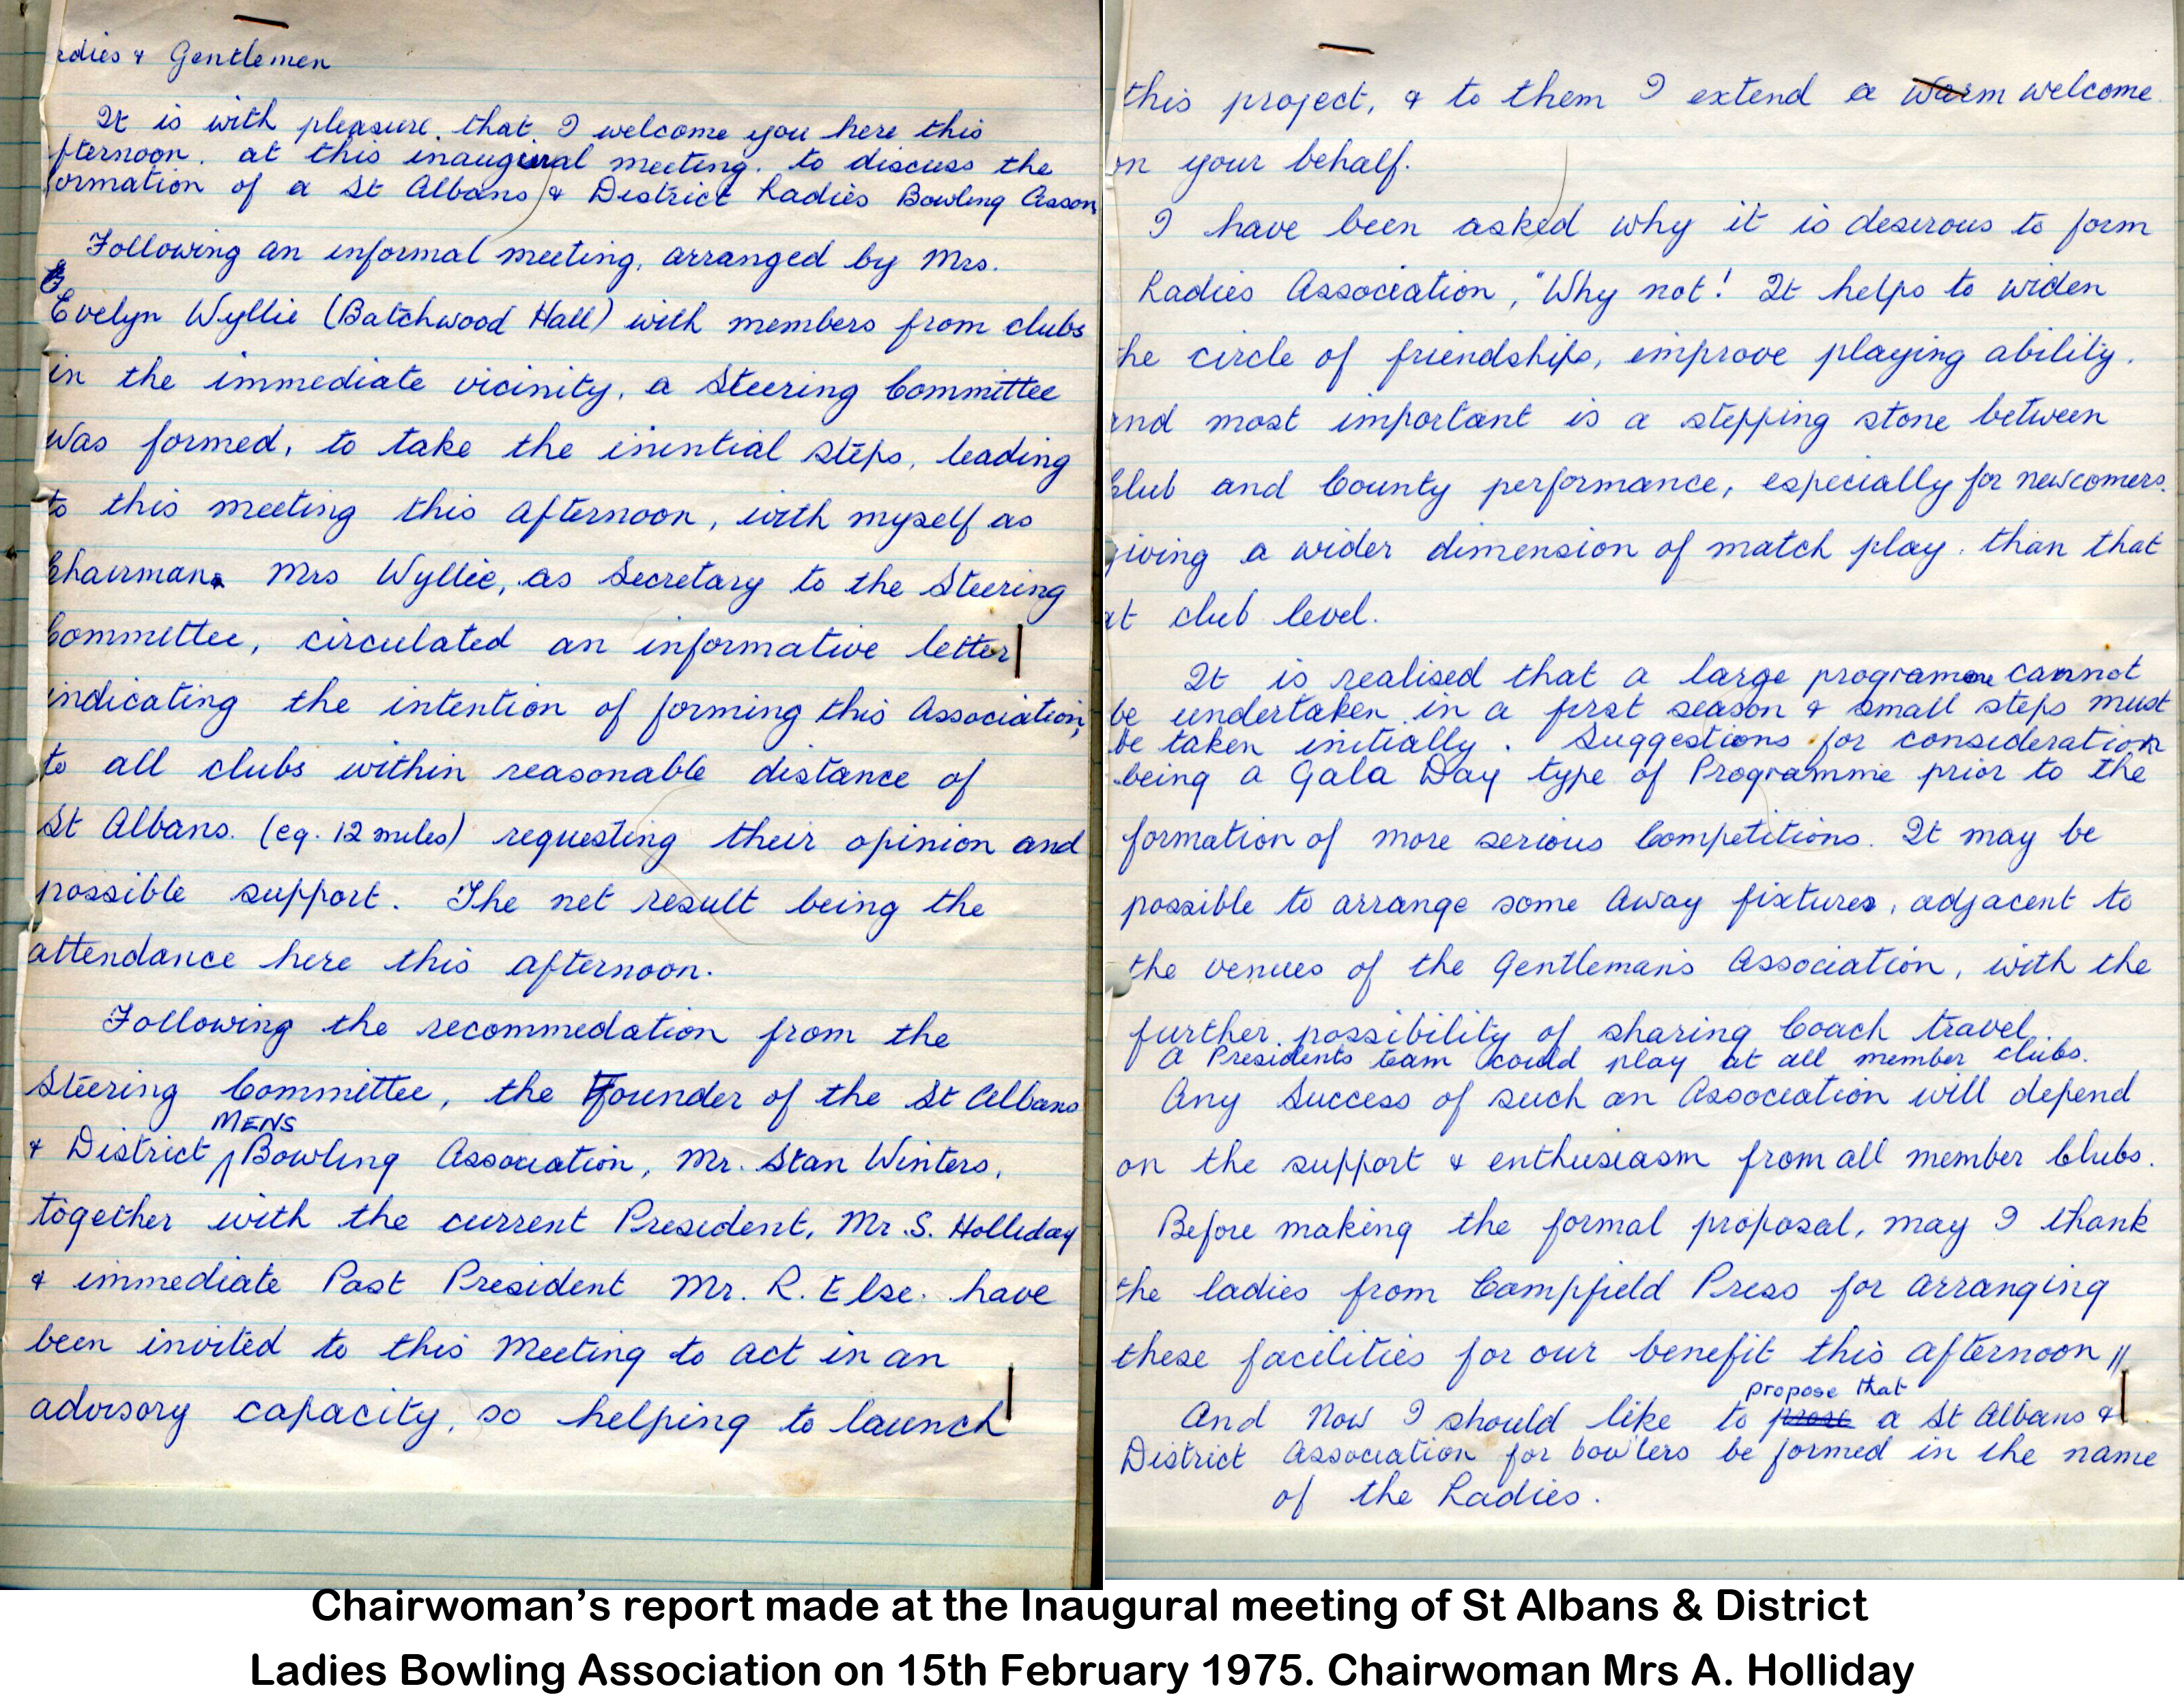 adies & Gentlemen
It is with pleasure. that. I welcome you here this
fternoon. at this inaugural meeting. to discuss the
formation of a St Albans & District Ladies Bowling Asson
Following an informal meeting, arranged by Mrs.
Evelyn Wyllie (Batchwood Hall) with members from clubs
in the immediate vicinity, a Steering Committee
was formed, to take the inential steps, leading
to this meeting this afternoon, with myself as
Chairman. Mrs Wyllie, as Secretary to the Steering
Committee, circulated an informative letter
indicating the intention of forming this Association,
to all clubs within reasonable distance of
St Albans. (eg. 12 miles) requesting their opinion and
possible support. The net result being the
attendance here this afternoon.
Following the recommedation from the
Steering Committee, the Founder of the St Albans
MENS
& District Bowling Association, Mr. Stan Winters,
together with the current President, Mr. S. Holliday
& immediate Past President Mr. R. Else. have
been invited to this Meeting to act in an
advisory capacity, so helping to launch
this project, & to them I extend a warm welcome
on your behalf.
I have been asked why it is deserous to form
Ladies Association, "Why not! It helps to widen
he circle of friendship, improve playing ability.
and most important is a stepping stone between
Club and County performance, especially for newcomers.
giving a wider dimension of match play. than that
at club level.
It is realised that a large programme cannot
be undertaken in a first season & small steps must
be taken initially. Suggestions for consideration
being a Gala Day type of Programme prior to the
formation of more serious Competitions. It may be
possible to arrange some away fixtures, adjacent to
the venues of the Gentleman's Association, with the
further possibility of sharing Coach travel.
A Presidents team could play at all member clubs.
Any Success of such an Association will depend
on the support & enthusiasm from all member Clubs.
Before making the formal proposal, may I thank
the ladies from Campfield Press for arranging
these facilities for our benefit this afternoon //
propose that
And Now I should like to prose a St Albans &
District Association for bowlers be formed in the name
of the Ladies.
Chairwoman's report made at the Inaugural meeting of St Albans & District
Ladies Bowling Association on 15th February 1975. Chairwoman Mrs A. Holliday